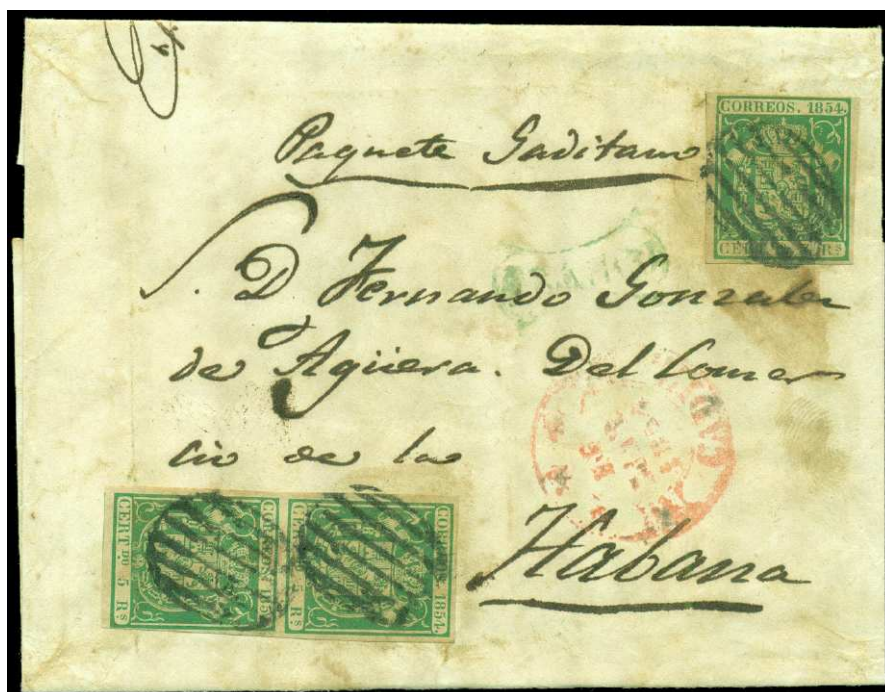 CORREOS. 1854.
Paquete Gaditano
S. D Fernando Gonzalez
de Agüera. Del Comer
cio de la
Habana
CERT.DO 5 RS.
CORREOS 1854.